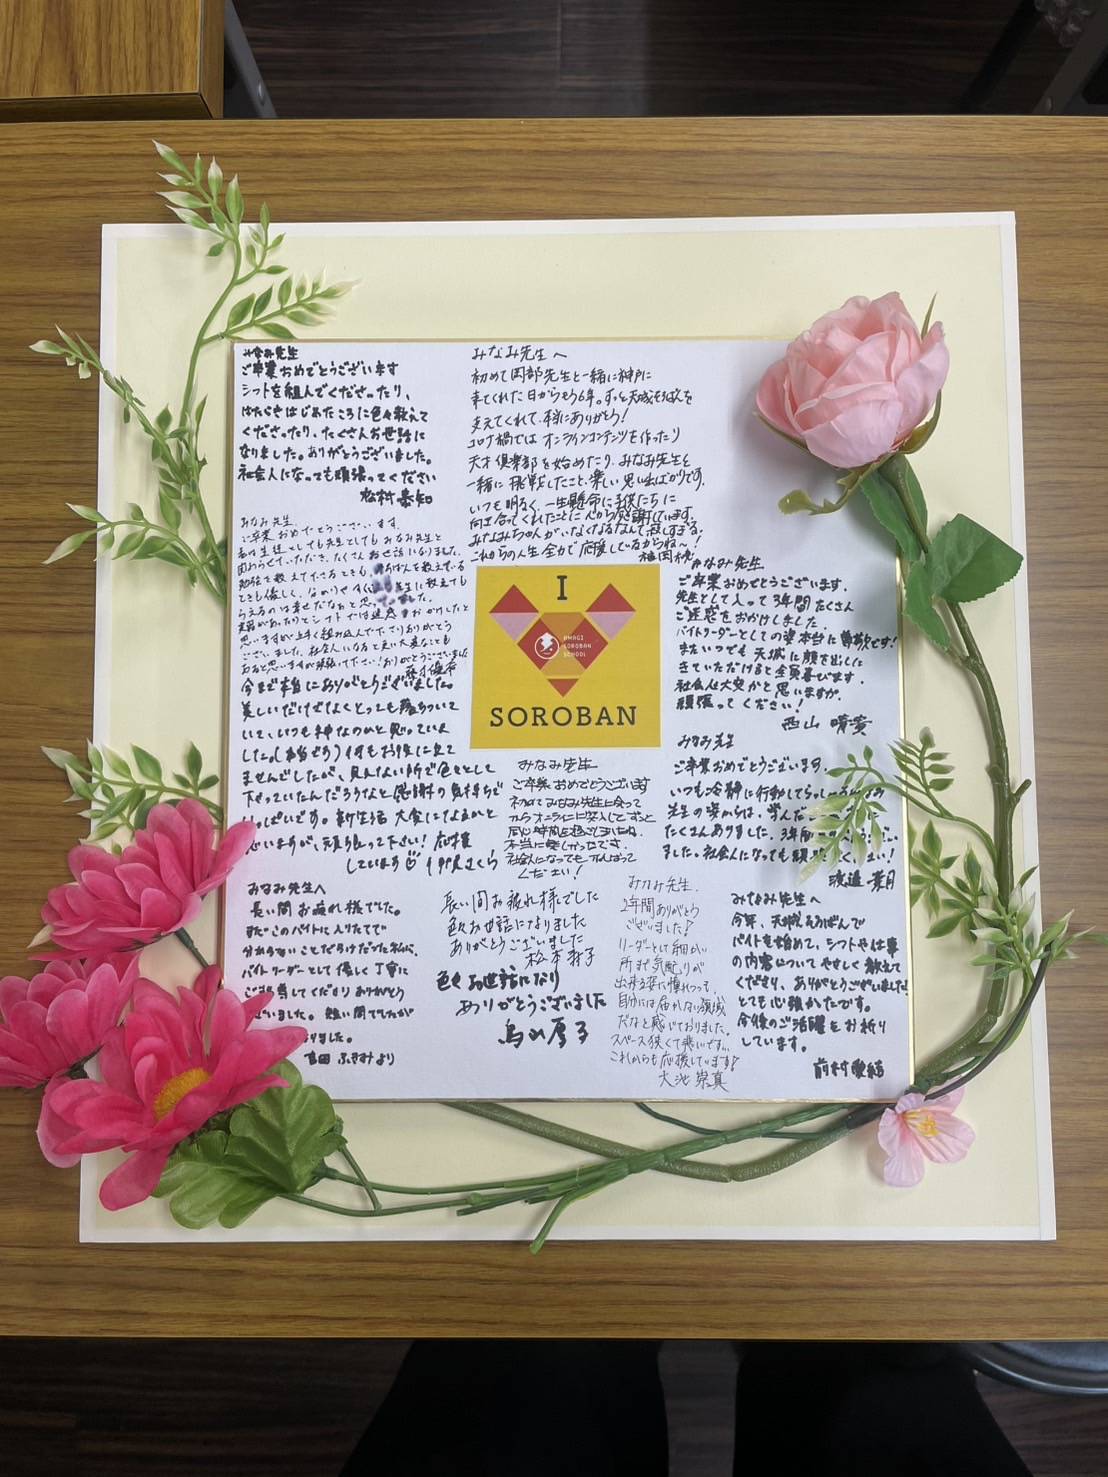 みなみ先生
ご卒業おめでとうございます
シフトを組んでくださったり、
はたらきはじめたころに色々教えて
くださったり、たくさんお世話に
なりました。ありがとうございました。
社会人になっても頑張ってください
松村
みなみ先生へ
初めて岡部先生と一緒に神戸に
来てくれた日からもう6年。ずっと天城そろばんを
支えてくれて、本当にありがとう!
コロナ禍では オンラインコンテンツを作ったり
天才倶楽部を始めたり、みなみ先生と
一緒に挑戦したこと、楽しい思い出ばかりです。
いつも明るく、一生懸命に子供たちに
向き合ってくれたことに心から感謝しています。
みなみちゃんがいなくなるなんて寂しすぎる。
これからの人生 全力で応援しているからね〜!
みなみ先生、
ご卒業おめでとうございます。
私の生徒としても先生としてもみなみ先生と
関わらせていただき、たくさんお世話になりました。
勉強を教えて下さるときも、そろばんを教えている
ときも優しく、
らえるのは幸せだなぁと思って
思いますが上手く組み込んで下さりありがとう
ございました。社会人になると更に大変なことも
あると思いますが頑張って下さい!ありがとうございました
I
AMAGI
SOROBAN
SCHOOL
SOROBAN
みなみ先生
ご卒業おめでとうございます。
先生として入って3年間たくさん
ご迷惑をおかけしました。
バイトリーダーとしての姿本当に尊敬です!
またいつでも天城に顔を出しに
きていただけると全員喜びます。
社会人は大変かと思いますが、
頑張ってください!
西山 晴貴
今まで本当にありがとうございました。
美しいだけでなくとっても落ちついて
いて、いつも神なのかと思っていま
した。(本当ぞう)何もお役に立て
ませんでしたが、見えない所で色々として
下さっていたんだろうなと感謝の気持ちで
いっぱいです。新生活 大変になるかと
思いますが、元気に頑張って下さい!応援
しています♡ さくら
みなみ先生
ご卒業おめでとうございます
初めてみなみ先生と会って
からオンラインに突入してずっと
同じ時間を過ごせましたね。
本当に楽しかったです。
社会人になってもがんばって
ください!
みなみ先生
ご卒業おめでとうございます。
いつも冷静に行動してらっしゃるみなみ
先生の姿からは、学んだ
たくさんありました。3年間
ました。社会人になっても頑 ください!
渡邉 菜月
みなみ先生へ
長い間お疲れ様でした。
まだこのバイトに入りたてで
分からないことだらけだった私に、
バイトリーダーとして優しく丁寧に
ご指導してくださりありがとう
ございました。短い間でしたが
りました。
吉田 ふきみより
長い間お疲れ様でした
色々お世話になりました
ありがとうございました
松本 群子
色々お世話になり
ありがとうございました
鳥山厚子
みなみ先生.
2年間ありがとう
ございました!
リーダーとして細かい
所まで気配りが
出来る姿に憧れつつ、
自分には届かない領域
だなと感じておりました。
スペース狭くて悲いです…
これからも応援しています!
大池 崇真
みなみ先生へ
今年、天城そろばんで
バイトを始めて、シフトや仕事
の内容についてやさしく教えて
くださり、ありがとうございました!
とても心強かったです。
今後のご活躍をお祈り
しています。
前村 愛結